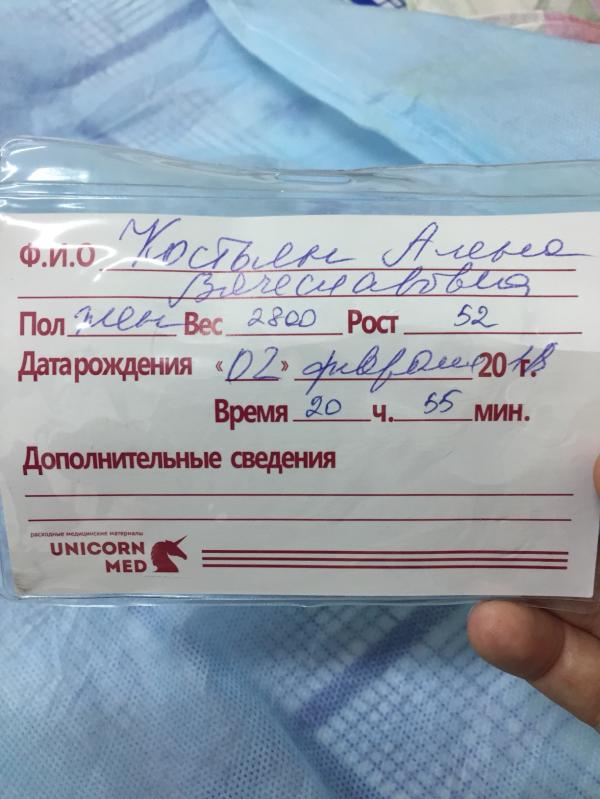 Ф.И.О Костьян Алена
Вячеславовна
Пол жен Вес 2800 Рост 52
Дата рождения «02» февраля 2018 г.
Время 20 ч. 55 мин.
Дополнительные сведения
расходные медицинские материалы
UNICORN
MED